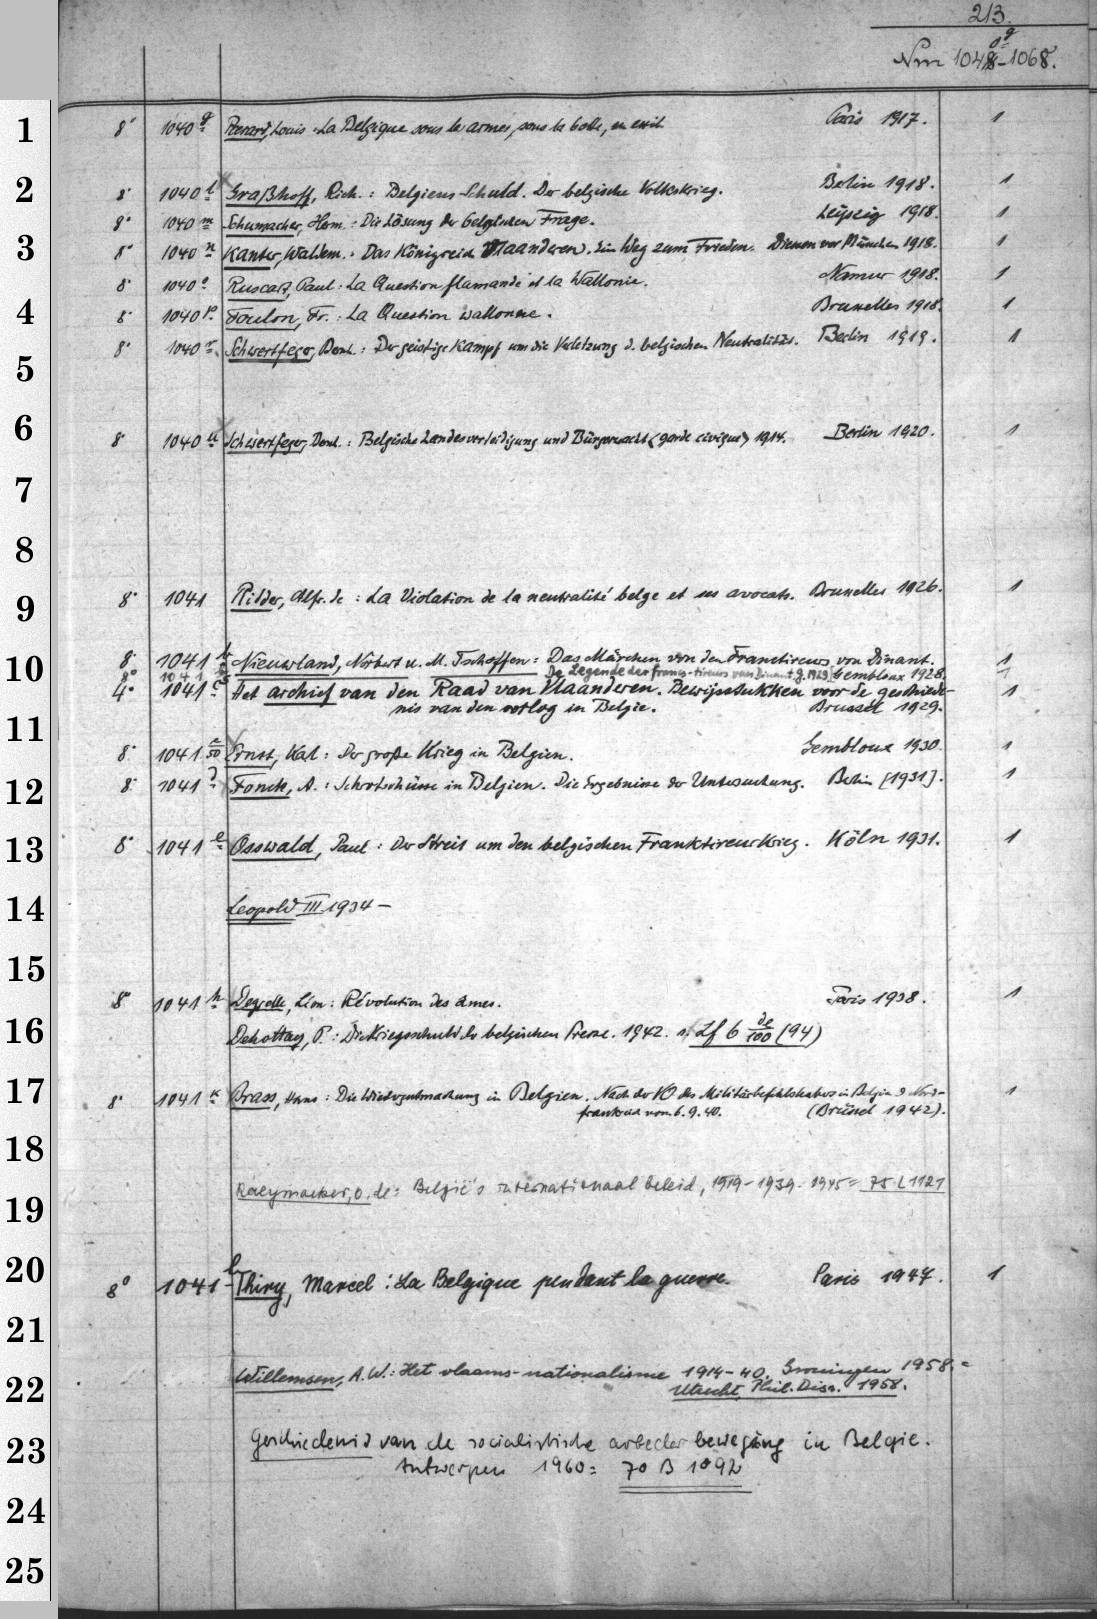 213.
Nrn 1040g-1068.
1 8° 1040 g Renard, Louis: La Belgique sous les armes, sous la botte, en exil Paris 1917. 1
2 8° 1040 l Graßhoff, Rich.: Belgiens Schuld. Der belgische Volkskrieg. Berlin 1918. 1
8° 1040 m Schumacher, Herm.: Die Lösung der belgischen Frage. Leipzig 1918. 1
3 8° 1040 n Kanter, Waldem.: Das Königreich Vlaanderen. Ein Weg zum Frieden. Diessen vor München 1918. 1
8° 1040 o Ruscart, Paul: La Question flamande et la Wallonie. Namur 1918. 1
4 8° 1040 p Foulon, Fr.: La Question wallonne. Bruxelles 1918. 1
8° 1040 r Schwertfeger, Bernh.: Der geistige Kampf um die Verletzung d. belgischen Neutralität. Berlin 1919. 1
5
6 8° 1040 u Schwertfeger, Bernh.: Belgische Landesverteidigung und Bürgerwacht (garde civique) 1914. Berlin 1920. 1
7
8
9 8° 1041 Ridder, Alfr. de: La Violation de la neutralité belge et ses avocats. Bruxelles 1926. 1
10 8° 1041 b Nieuwland, Norbert u. M. Tschoffen: Das Märchen von den Franctireurs von Dinant. 1
8° 1041 De Legende der francs-tireurs van Dinant. g. 1929 Gembloux 1928. 1
4° 1041 c Het archief van den Raad van Vlaanderen. Bewijsstukken voor de geschiede- 1
nis van den oorlog in Belgie. Brussel 1929.
11
8° 1041 c/50 Ernst, Karl: Der große Krieg in Belgien. Gembloux 1930. 1
12 8° 1041 d Fonck, A.: Schrotschüsse in Belgien. Die Ergebnisse der Untersuchung. Berlin [1931]. 1
13 8° 1041 e Osswald, Paul: Der Streit um den belgischen Franktireurkrieg. Köln 1931. 1
14 Leopold III 1934-
15
8° 1041 h Degrelle, Léon: Révolution des âmes. Paris 1938. 1
16 Dehottay, P.: Die Kriegsschuld der belgischen Presse. 1942. s. Lf 6 de/100 (94)
17 8° 1041 k Brass, Hans: Die Wiedergutmachung in Belgien. Nach der VO des Militärbefehlshabers in Belgien u Nord- 1
frankreich vom 6.9.40. (Brüssel 1942).
18
Raeymaeker, O. de: België's internationaal beleid, 1919-1939. 1945= 75 L 1121
19
20 8° 1041 l Thiry, Marcel: La Belgique pendant la guerre. Paris 1947. 1
21
Willemsen, A.W.: Het vlaams-nationalisme 1914-40. Groningen 1958.=
22 Utrecht, Phil. Diss. 1958.
23 Geschiedenis van de socialistische arbeidersbeweging in Belgie.
Antwerpen 1960= 70 B 1092
24
25